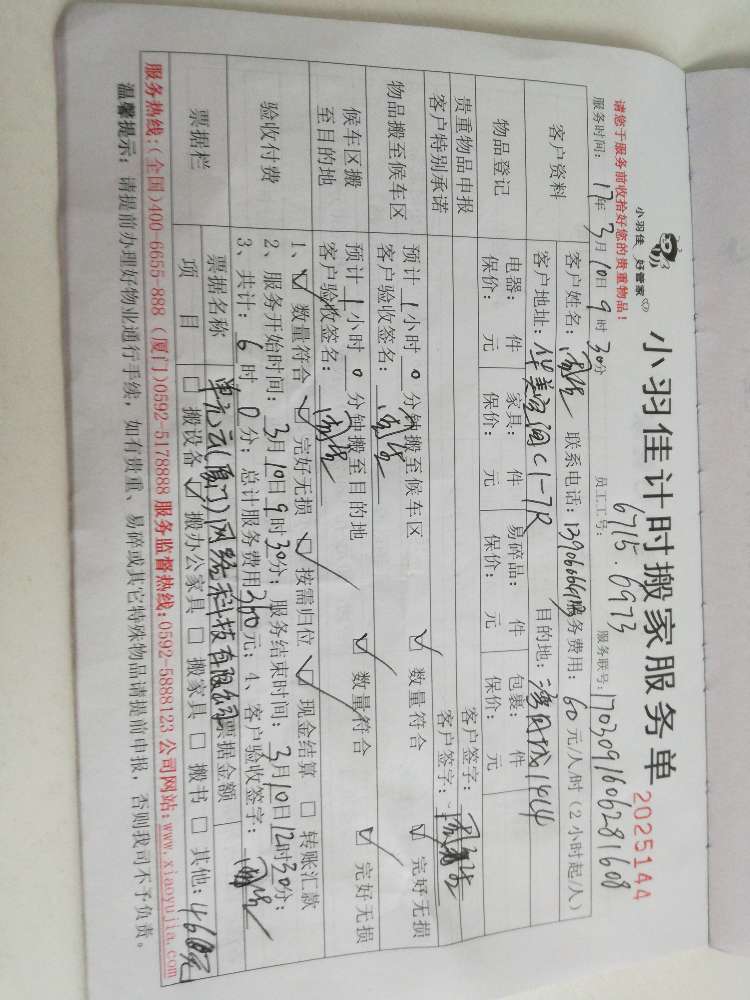 小羽佳 好管家
小羽佳计时搬家服务单
2025144
请您于服务前收拾好您的贵重物品！
员工工号：6715.6973
服务联号：1703091606281608
服务时间：17年3月10日9时30分
客户资料
客户姓名： 联系电话： 服务费用：60元/人/时（2小时起/人）
客户地址： C1-7R 目的地： 1444
物品登记
电器： 件 家具： 件 易碎品： 件 包裹： 件
保价： 元 保价： 元 保价： 元 保价： 元
贵重物品申报 客户签字：
客户特别承诺 客户签字：
物品搬至候车区
预计1小时0分钟搬至候车区 ☑ 数量符合 ☑ 完好无损
客户验收签名：
候车区搬至目的地
预计1小时0分钟搬至目的地 ☑ 数量符合 ☑ 完好无损
客户验收签名：
验收付费
1、☑ 数量符合 ☑ 完好无损 ☑ 按需归位 ☑ 现金结算 □ 转账汇款
2、服务开始时间：3月10日9时30分；服务结束时间：3月10日12时30分；
3、共计：6时0分；总计服务费用360元；4、客户验收签字：
票据栏
票据名称 单元云(厦门)网络科技有限公司 票据金额
项目 □ 搬设备 ☑ 搬办公家具 □ 搬家具 □ 搬书 □ 其他：
服务热线：(全国)400-6655-888 (厦门)0592-5178888 服务监督热线：0592-5888123 公司网站：www.xiaoyujia.com
温馨提示：请提前办理好物业通行手续，如有贵重、易碎或其它特殊物品请提前申报，否则我司不予负责。